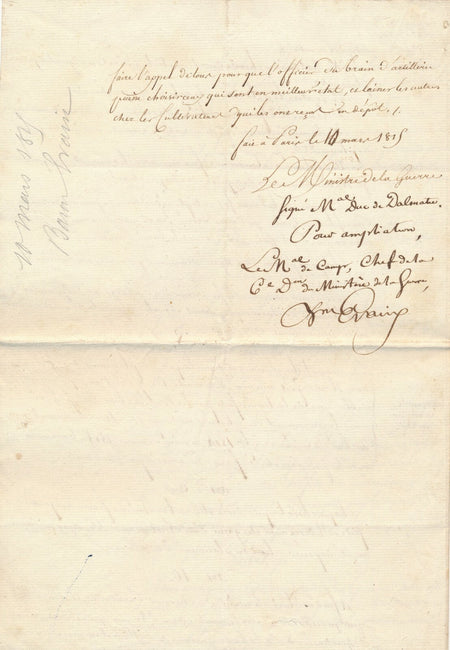 faire l'appel de tous pour que l'officier du train d'artillerie
puisse choisir ceux qui sont en meilleur état, et laisser les autres
chez les Cultivateurs qui les ont reçus en dépôt ./.
fait à Paris le 10 mars 1815
Le Ministre de la Guerre
signé M.al Duc de Dalmatie.
Pour ampliation,
Le M.al de Camp, Chef de la
6.e D.on du Ministère de la Guerre,
B.on Evain
10 mars 1815
Baron Evain